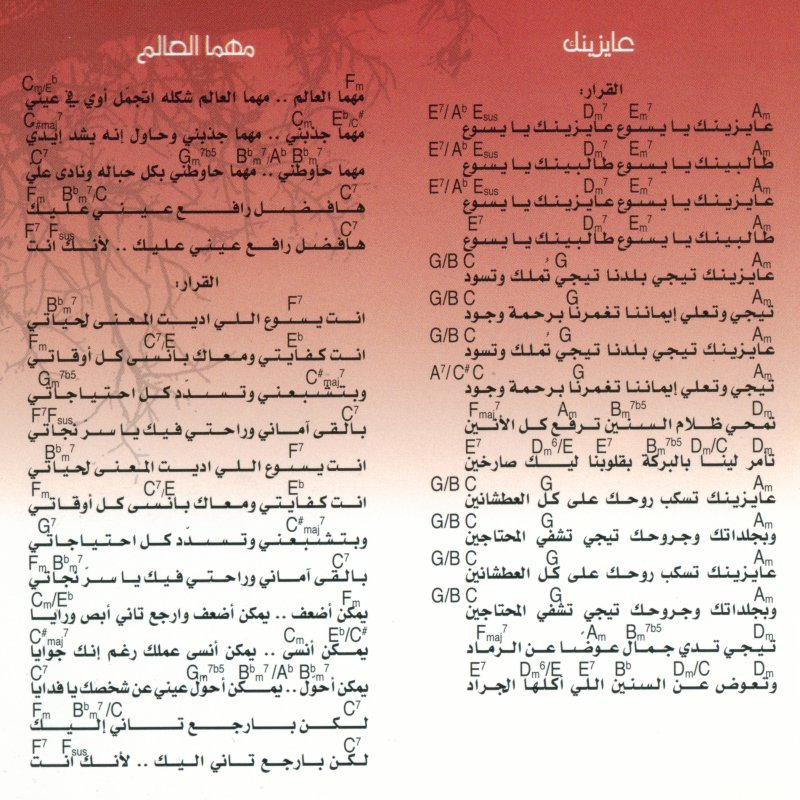 عايزينك
القرار:
E7/Ab Esus Dm7 Em7 Am
عايزينك يا يسوع عايزينك يا يسوع
E7/Ab Esus Dm7 Em7 Am
طالبينك يا يسوع طالبينك يا يسوع
E7/Ab Esus Dm7 Em7 Am
عايزينك يا يسوع عايزينك يا يسوع
E7 Dm7 Em7 Am
طالبينك يا يسوع طالبينك يا يسوع
G/B C G Am
عايزينك تيجي بلدنا تيجي تُملك وتسود
G/B C G Am
تيجي وتعلي إيماننا تغمرنا برحمة وجود
G/B C G Am
عايزينك تيجي بلدنا تيجي تُملك وتسود
A7/C# C G Am
تيجي وتعلي إيماننا تغمرنا برحمة وجود
Fmaj7 Am Bm7b5 Dm
تمحي ظلام السنين ترفع كل الأنين
E7 Dm6/E E7 Bm7b5 Dm/C Dm
تأمر لينا بالبركة بقلوبنا ليك صارخين
G/B C G Am
عايزينك تسكب روحك على كل العطشانين
G/B C G Am
وبجلداتك وجروحك تيجي تشفي المحتاجين
G/B C G Am
عايزينك تسكب روحك على كل العطشانين
G/B C G Am
وبجلداتك وجروحك تيجي تشفي المحتاجين
Fmaj7 Am Bm7b5 Dm
تيجي تدي جمال عوضًا عن الرماد
E7 Dm6/E E7 Bb Dm/C Dm
وتعوض عن السنين اللي أكلها الجراد
مهما العالم
Cm/Eb Fm
مهما العالم .. مهما العالم شكله اتجمّل أوي في عيني
C#maj7 Cm Eb/C#
مهما جذبني .. مهما جذبني وحاول إنه يشد إيدي
C7 Gm7b5 Bbm7/Ab Bbm7
مهما حاوطني .. مهما حاوطني بكل حباله ونادى علي
Fm Bbm7/C C7
هافضل رافع عيني عليك
F7 Fsus C7
هافضل رافع عيني عليك .. لأنك انت
القرار:
Bbm7 F7
انت يسوع اللي اديت المعنى لحياتي
Fm C7/E Eb
انت كفايتي ومعاك بانسى كل أوقاتي
Gm7b5 C#maj7
وبتشبعني وتسدّد كل احتياجاتي
F7 Fsus C7
بالقى آماني وراحتي فيك يا سر نجاتي
Bbm7 F7
انت يسوع اللي اديت المعنى لحياتي
Fm C7/E Eb
انت كفايتي ومعاك بانسى كل أوقاتي
G7 C#maj7
وبتشبعني وتسدّد كل احتياجاتي
Fm Bbm7 C7
بالقى آماني وراحتي فيك يا سرّ نجاتي
Cm/Eb Fm
يمكن أضعف .. يمكن أضعف وارجع تاني أبص ورايا
C#maj7 Cm Eb/C#
يمكن أنسى .. يمكن أنسى عملك رغم إنك جوايا
C7 Gm7b5 Bbm7/Ab Bbm7
يمكن أحول .. يمكن أحوّل عيني عن شخصك يا فدايا
Fm Bbm7/C C7
لكن بارجع تاني إليك
F7 Fsus C7
لكن بارجع تاني اليك .. لأنك انت